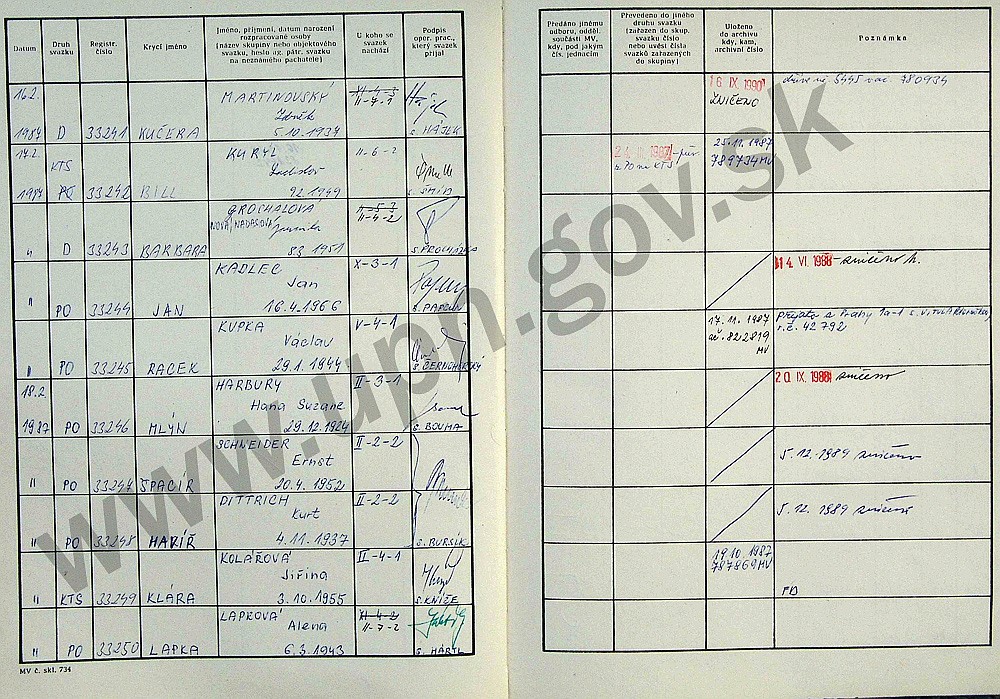 Datum
Druh svazku
Registr. číslo
Krycí jméno
Jméno, příjmení, datum narození
rozpracované osoby
(název skupiny nebo objektového
svazku, heslo ag. pátr. svazku
na neznámého pachatele)
U koho se
svazek
nachází
Podpis
oper. prac.,
který svazek
přijal
Předáno jinému
odboru, odděl.
součásti MV,
kdy, pod jakým
čís. jednacím
Převedeno do jiného
druhu svazku
(zařazen do skup.
svazku číslo
nebo uvést čísla
svazků zařazených
do skupiny)
Uloženo
do archivu
kdy, kam,
archivní číslo
Poznámka
16.2. MARTINOVSKÝ II-4-1
Zdeněk
1987 D 33241 KUČERA 5.10.1937 s. HÁJEK
16. IX. 1990
ZNIČENO
17.2. KURYL II-6-2
KTS Ladislav
1987 PO 33242 BILL 9.2.1949 s. ŠMÍD
25.11.1987
789734 MV
GROCHALOVÁ II-4-2
" D 33243 BARBARA 8.3.1951 s. PROCHÁZKA
KADLEC X-3-1
Jan
" PO 33244 JAN 16.4.1966
14. VI. 1988 - zničeno
KUPKA V-4-1
Václav
" PO 33245 RACEK 29.1.1944 s. ČERNOHORSKÝ
17.11.1987
ač. 822819
MV
r.č. 42792
18.2. HARBURY II-3-1
Hana Suzane
1987 PO 33246 MLÝN 29.12.1924 s. BOUMA
20. IX. 1988 zničeno
SCHNEIDER II-2-2
Ernst
" PO 33247 ŠPACÍR 20.4.1952
5.12.1989 zničeno
DITTRICH II-2-2
Kurt
" PO 33248 HARÍŘ 4.11.1937 s. BURSÍK
5.12.1989 zničeno
KOLÁŘOVÁ II-4-1
Jiřina
" KTS 33249 KLÁRA 3.10.1955 s. KNÍŽE
19.10.1987
787869 MV
LAPKOVÁ II-7-2
Alena
" PO 33250 LAPKA 6.3.1943 s. HÁRTL
MV č. skl. 734
www.upn.gov.sk